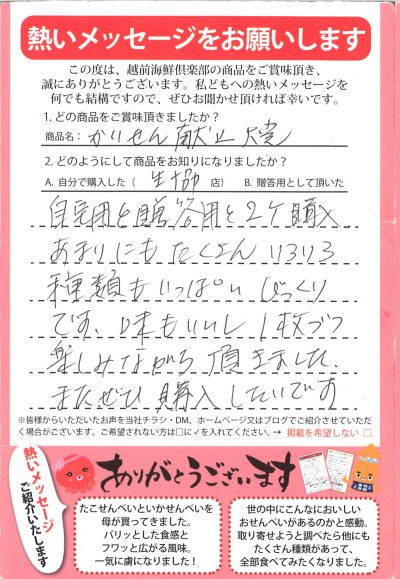 熱いメッセージをお願いします
この度は、越前海鮮倶楽部の商品をご賞味頂き、
誠にありがとうございます。私どもへの熱いメッセージを
何でも結構ですので、ぜひお聞かせ頂ければ幸いです。
1. どの商品をご賞味頂きましたか？
商品名： かいせん献上大党
2. どのようにして商品をお知りになりましたか？
A. 自分で購入した（ 生協 店） B. 贈答用として頂いた
自宅用と贈答用と2ケ購入
あまりにもたくさんいろいろ
種類もいっぱいびっくり
です、味もいいし1枚づつ
楽しみながら頂きました
またぜひ購入したいです
※皆様からいただいたお声を当社チラシ・DM、ホームページ又はブログでご紹介させていただ
く場合がございます。ご希望されない方は□に✓を入れてください。→ 掲載を希望しない □
熱いメッセージ
ご紹介いたします
ありがとうございます
たこせんべいといかせんべいを
母が買ってきました。
パリッとした食感と
フワッと広がる風味。
一気に虜になりました！
世の中にこんなにおいしい
おせんべいがあるのかと感動。
取り寄せようと調べたら他にも
たくさん種類があって、
全部食べてみたくなりました。